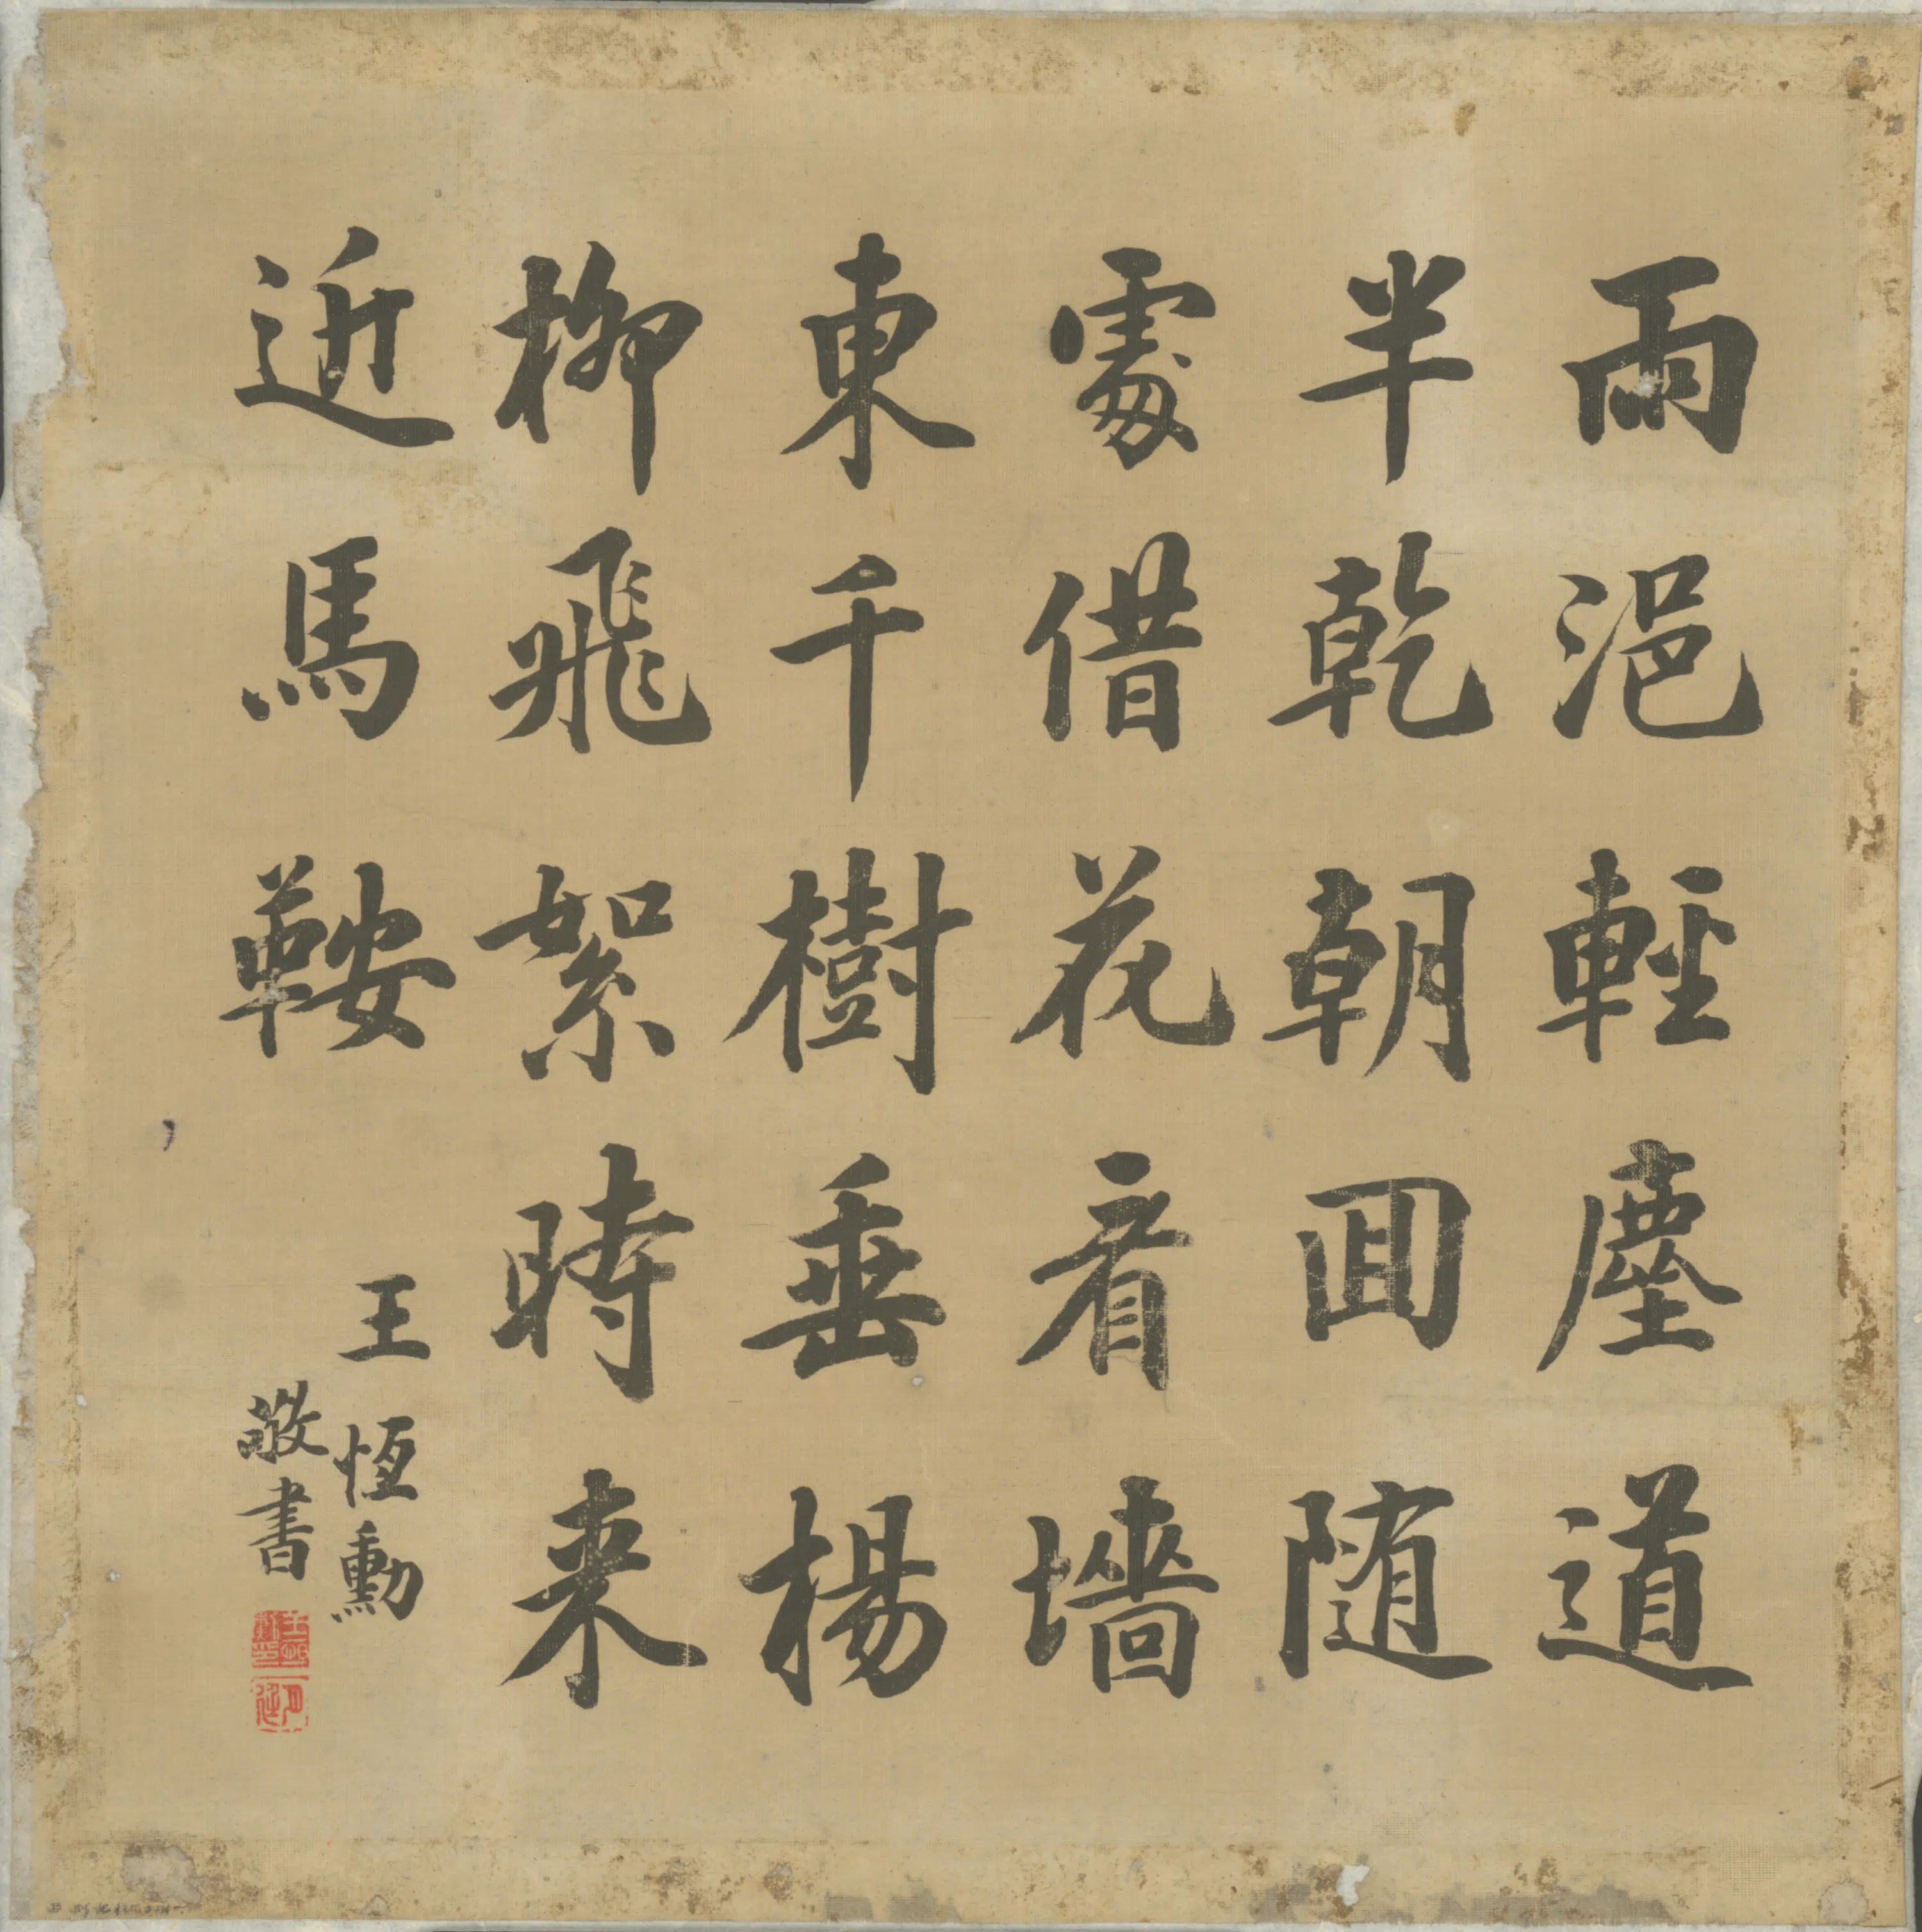 雨浥輕塵道
半乾朝囬随
處借花看墻
東千樹垂楊
柳飛絮時来
近馬鞍
王恆勳
敬書